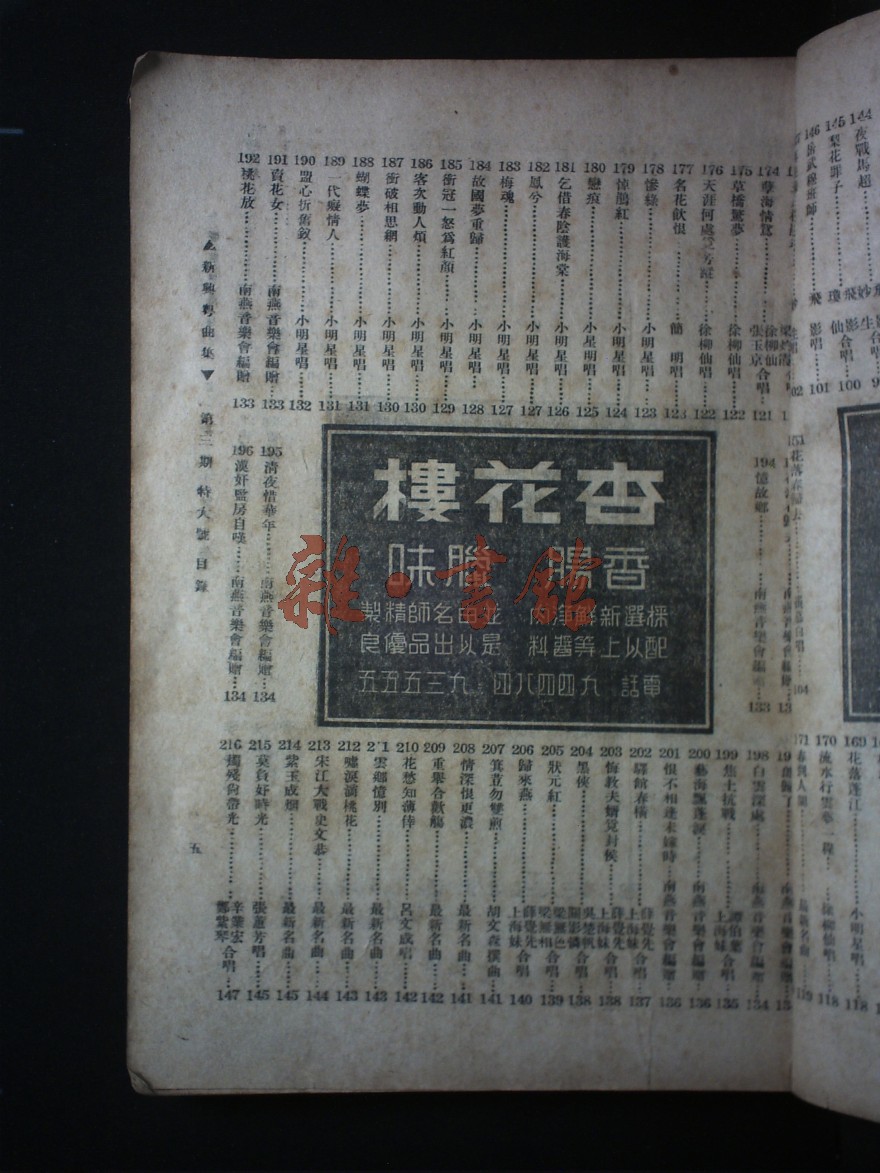 174 孽海情鴛 徐柳仙 張玉京 合唱 121
175 草橋驚夢 徐柳仙唱 122
176 天涯何處 徐柳仙唱 122
177 名花飲恨 簡 明唱 123
178 慘綠 小明星唱 123
179 悼鵑紅 小明星唱 124
180 戀痕 小星明唱 125
181 乞借春陰護海棠 小明星唱 126
182 鳳兮 小明星唱 127
183 梅魂 小明星唱 127
184 故國夢重歸 小明星唱 128
185 衝冠一怒為紅顔 小明星唱 129
186 客次動人煩 小明星唱 130
187 衝破相思網 小明星唱 130
188 蝴蝶夢 小明星唱 131
189 一代癡情人 小明星唱 131
190 盟心忻舊釵 小明星唱 132
191 賣花女 南燕音樂會編贈 133
192 桃花放 南燕音樂會編贈 133
杏花樓
香腸 臘味
揀選新鮮淨肉 並由名師精製
配以上等醬料 是以出品優良
電話 九四四八四・九三五五五
194 憶故鄉 南燕音樂會編 133
195 清夜惜華年 南燕音樂會編贈 134
196 漢奸監房自嘆 南燕音樂會編贈 134
198 白雲深處 南燕音樂會編 134
199 焦土抗戰 譚伯葉 上海妹 合唱 135
200 藝海飄蓬淚 南燕音樂會編贈 136
201 恨不相逢未嫁時 南燕音樂會編贈 136
202 驛館春橋 薛覺先 上海妹 合唱 137
203 悔教夫婿覓封侯 薛覺先 上海妹 合唱 138
204 墨俠 吳楚帆 關影憐 合唱 138
205 狀元紅 梁麗色 梁麗相 合唱 139
206 歸來燕 薛覺先 上海妹 合唱 140
207 箕荳勿雙煎 胡文森撰曲 141
208 情深恨更濃 最新名曲 141
209 重舉合歡觴 最新名曲 142
210 花愁知薄倖 呂文成唱 142
211 雲鄉憶別 最新名曲 143
212 噓淚滴桃花 最新名曲 143
213 宋江大戰史文恭 最新名曲 144
214 紫玉成烟 最新名曲 145
215 莫負好時光 張蕙芳唱 145
216 獨殘衾帶光 辛葉宏 鄭紫琴 合唱 147
▲新興粵曲集▼ 第三期 特大號 目錄
五
144 夜戰馬超
145 梨花罪子
146 岳武穆班師 飛影唱 101
169 花落蓬江 小明星唱 118
170 流水行雲 徐柳仙唱 118
171 春與人樂 最新名曲 119
雜・書館